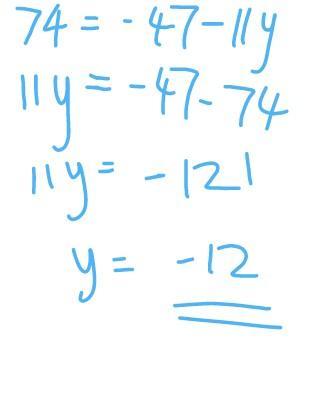 74 = -47-11y
11y = -47-74
11y = -121
y = -12